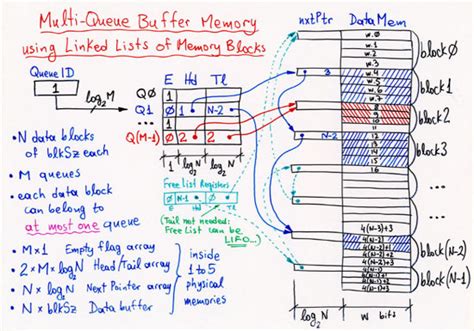 Multi-Queue Buffer Memory
using Linked Lists of Memory Blocks
Queue ID
1
log₂M
E Hd Tl
Q0 1
Q1 0 1 N-2
1
Q(M-1) 0 2 2
1 log₂N log₂N
• N data blocks
of blkSz each
• M queues
• each data block
can belong to
at most one queue
• M×1 Empty flag array
• 2×M×log₂N Head/Tail array
• N×log₂N Next Pointer array
• N×blkSz Data buffer
inside
1 to 5
physical
memories
Free List Registers
E Hd Tl
(Tail not needed:
Free List can be
LIFO...)
nxtPtr DataMem
w.0
w.1
w.2
w.3
block0
3
w.4
w.5
w.6
w.7
block1
8
9
10
11
block2
N-2
12
13
14
15
block3
16
...
...
4(N-2)
4(N-2)+1
4(N-2)+2
4(N-2)+3
block(N-2)
4(N-1)
4(N-1)+1
4(N-1)+2
4(N-1)+3
block(N-1)
log₂N
w bits